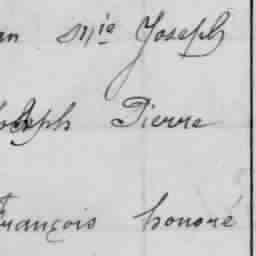 an Mie Joseph
Joseph Pierre
François honoré